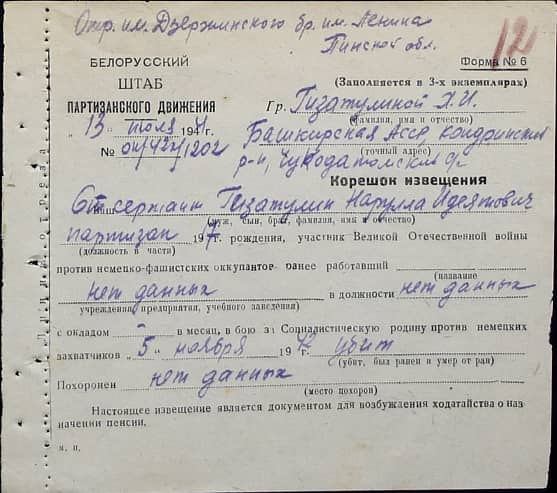 Отр. им. Дзержинского бр. им. Ленина
Пинской обл.
12
БЕЛОРУССКИЙ
ШТАБ
ПАРТИЗАНСКОГО ДВИЖЕНИЯ
„13" июля 194 г.
№ 04/422/1202
Форма № 6
(Заполняется в 3-х экземплярах)
Гр. Гизатулиной Х.И.
(фамилия, имя и отчество)
Башкирская Асср, кондринский
(точный адрес)
р-н,
Корешок извещения
Ваш Ст. сержант Гизатулин Нарулла Идеятович
(муж, сын, брат, фамилия, имя и отчество)
партизан 1917г. рождения, участник Великой Отечественной войны
(должность в части)
против немецко-фашистских оккупантов ранее работавший
(название
нет данных в должности нет данных
учреждения предприятия, учебного заведения)
с окладом - в месяц, в бою за Социалистическую родину против немецких
захватчиков „5" ноября 1942г. убит
(убит, был ранен и умер от ран)
Похоронен нет данных
(место похорон)
Настоящее извещение является документом для возбуждения ходатайства о наз
начении пенсии.
м. п.